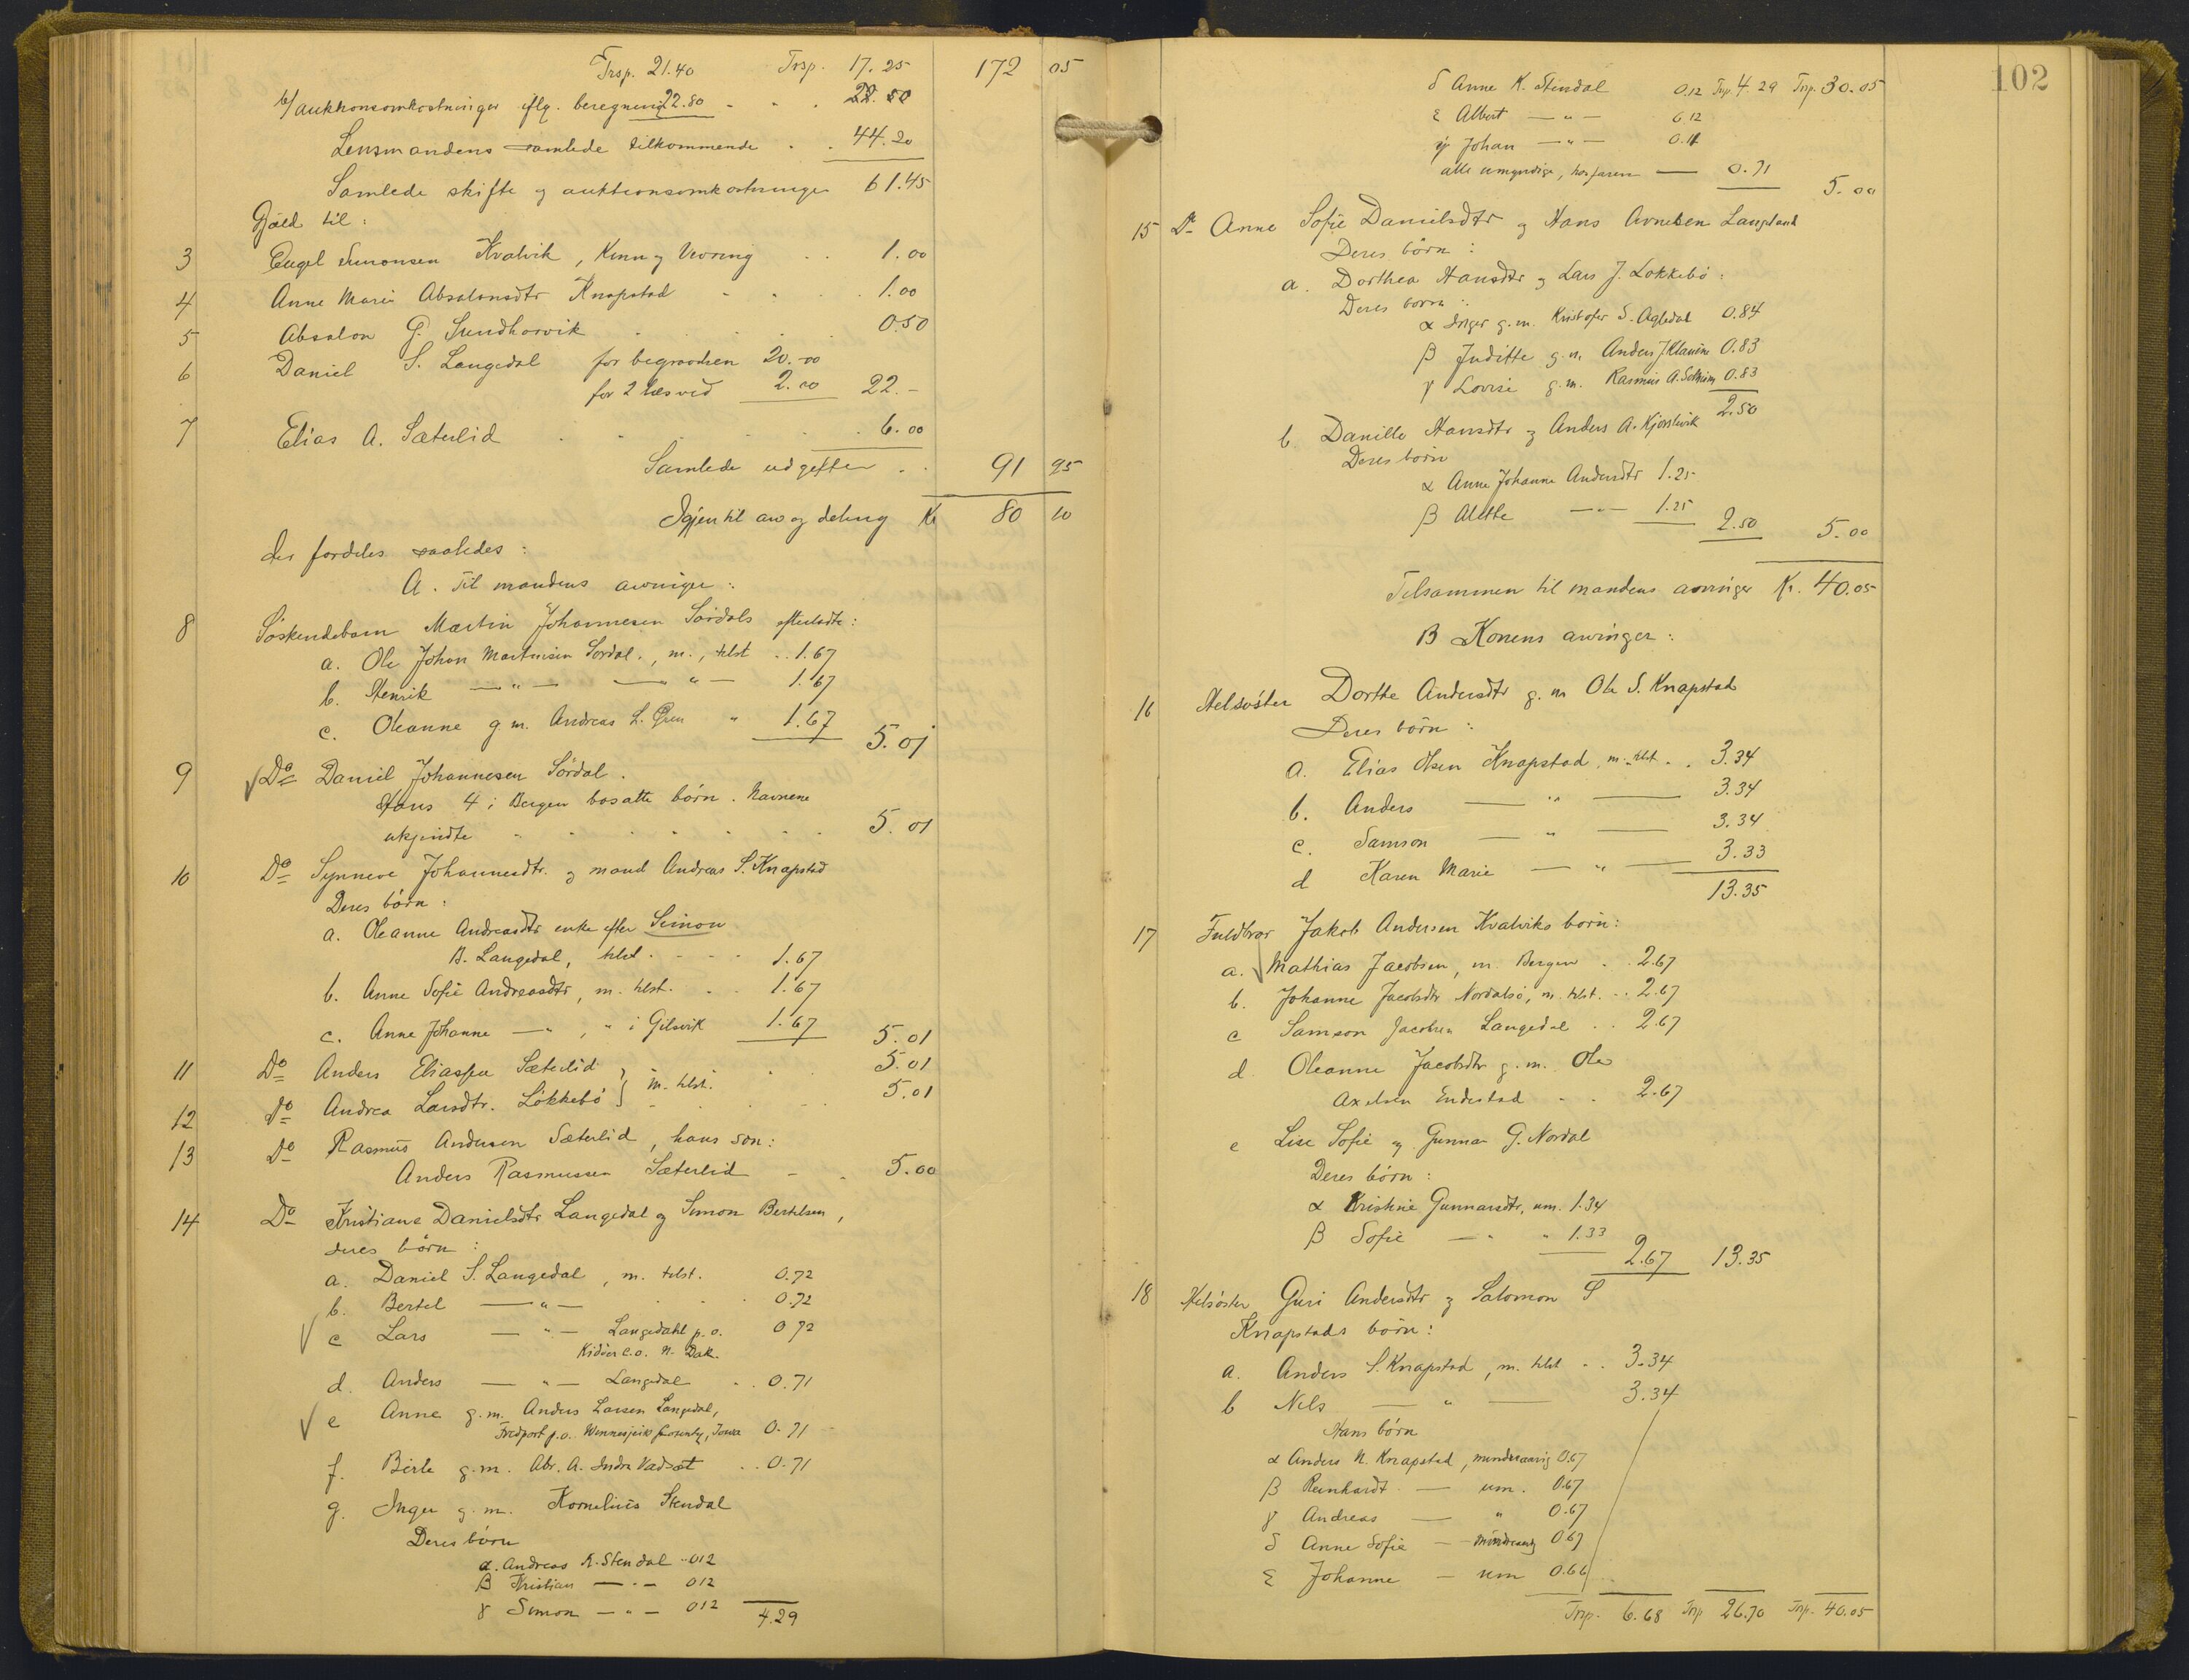 Trsp. 21.40 Trsp. 17.25 172 05
b/ auktionsomkostninger iflg. beregning 22.80 22.80
Lensmandens samlede tilkommende . . 44.20
Samlede skifte og auktionsomkostninger 61.45
Gjæld til :
3 Engel Simonsen Kvalvik, Kinn og Vevring . . 1.00
4 Anne Marie Absalonsdtr Knapstad - . . 1.00
5 Absalon G. Sundhorvik . . . 0.50
6 Daniel S. Langedal for begravelsen 20.00
for 2 læs ved 2.00 22.-
7 Elias A. Sæterlid . . . 6.00
Samlede udgifter . . 91 95
Igjen til arv og deling Kr 80 10
der fordeles saaledes :
A. Til mandens arvinger :
8 Söskendebarn Martin Johannesen Sördals efterladte :
a. Ole Johan Martinsen Sördal., m., tilst . . 1.67
b. Henrik — " — — " — 1.67
c. Oleanne g.m. Andreas L. " 1.67 5.01
9 Do Daniel Johannesen Sördal.
Hans 4 i Bergen bosatte börn. Navnene
ukjendte " " " " 5.01
10 Do Synneve Johannesdtr. og mand Andreas S. Knapstad
Deres börn :
a. Oleanne Andreasdtr enke efter Simon
B. Langedal, tilst. - - - 1.67
b. Anne Sofie Andreasdtr, m. tilst. . . 1.67
c. Anne Johanne — " , " i Gilsvik 1.67 5.01
11 Do Anders Eliassen Sæterlid } . . 5.01
12 Do Andrea Larsdtr. Lökkebö } m. tilst. . . 5.01
13 Do Rasmus Andersen Sæterlid, hans sön :
Anders Rasmussen Sæterlid - . 5.00
14 Do Kristiane Danielsdtr Langedal og Simon Bertelsen,
deres börn :
a. Daniel S. Langedal, m. tilst. 0.72
b. Bertel — " — . . . 0.72
c Lars — " — Langedahl p.o. 0.72
Kidder c.o. N. Dak.
d. Anders — " — Langedal . . 0.71
e Anne g.m. Anders Larsen Langedal,
Fredport p.o. Winnesjeik County, Iowa 0.71
f. Birte g.m. Abr. A. Indre Vadset . . 0.71
g. Inger g.m. Kornelius Stendal
Deres börn
α. Andreas K. Stendal .. 0 12
β Kristian — " — 0 12
γ Simon — " — 0 12 4.29
102
δ Anne K. Stendal 0.12 Trp. 4.29 Trp. 30.05
ε Albert — " — 0 12
Johan — " — 0.11
alle umyndige, hos faren — 0.71 5.00
15 Do Anne Sofie Danielsdtr og Hans Arnesen Langeland
Deres börn :
a. Dorthea Hansdtr og Lars J. Lökkebö :
Deres börn :
α Inger g.m. Kristofer S. Agledal 0.84
β Juditte g.m. Anders J. 0.83
γ Lovise g.m. Rasmus A. Solheim 0.83
2.50
b. Danille Hansdtr og Anders A. Kjörslevik
Deres börn
α Anne Johanne Andersdtr 1.25
β Alette — " — 1.25 2.50 5.00
Tilsammen til mandens arvinger Kr. 40.05
B Konens arvinger :
16 Helsöster Dorthe Andersdtr g.m Ole S. Knapstad
Deres börn :
a. Elias Olsen Knapstad, m. tilst. . 3.34
b. Anders — " — 3.34
c. Samson — " — 3.34
d Karen Marie — " — 3.33
13.35
17 Fuldbror Jakob Andersen Kvalviks börn :
a. Mathias Jacobsen, m. Bergen . . 2.67
b. Johanne Jacobsdtr Nordalsö, m. tilst. . . 2.67
c Samson Jacobsen Langedal . . 2.67
d. Oleanne Jacobsdtr g.m. Ole
Axelsen Endestad . . 2.67
e Lise Sofie og Gunnar G. Nordal
Deres börn :
α Kristine Gunnarsdtr, um. 1.34
β Sofie — " " 1.33
2.67 13.35
18 Helsöster Guri Andersdtr og Salomon S
Knapstads börn :
a. Anders S. Knapstad, m. tilst . . 3.34
b Nils — " — 3.34
Hans börn
α Anders N. Knapstad, mindreaarig 0.67
β Reinhardt — um. 0.67
γ Andreas — " 0.67
δ Anne Sofie — mindreaarig 0.67
ε Johanne — um 0.66
Trsp. 6.68 Trsp 26.70 Trsp. 40.05